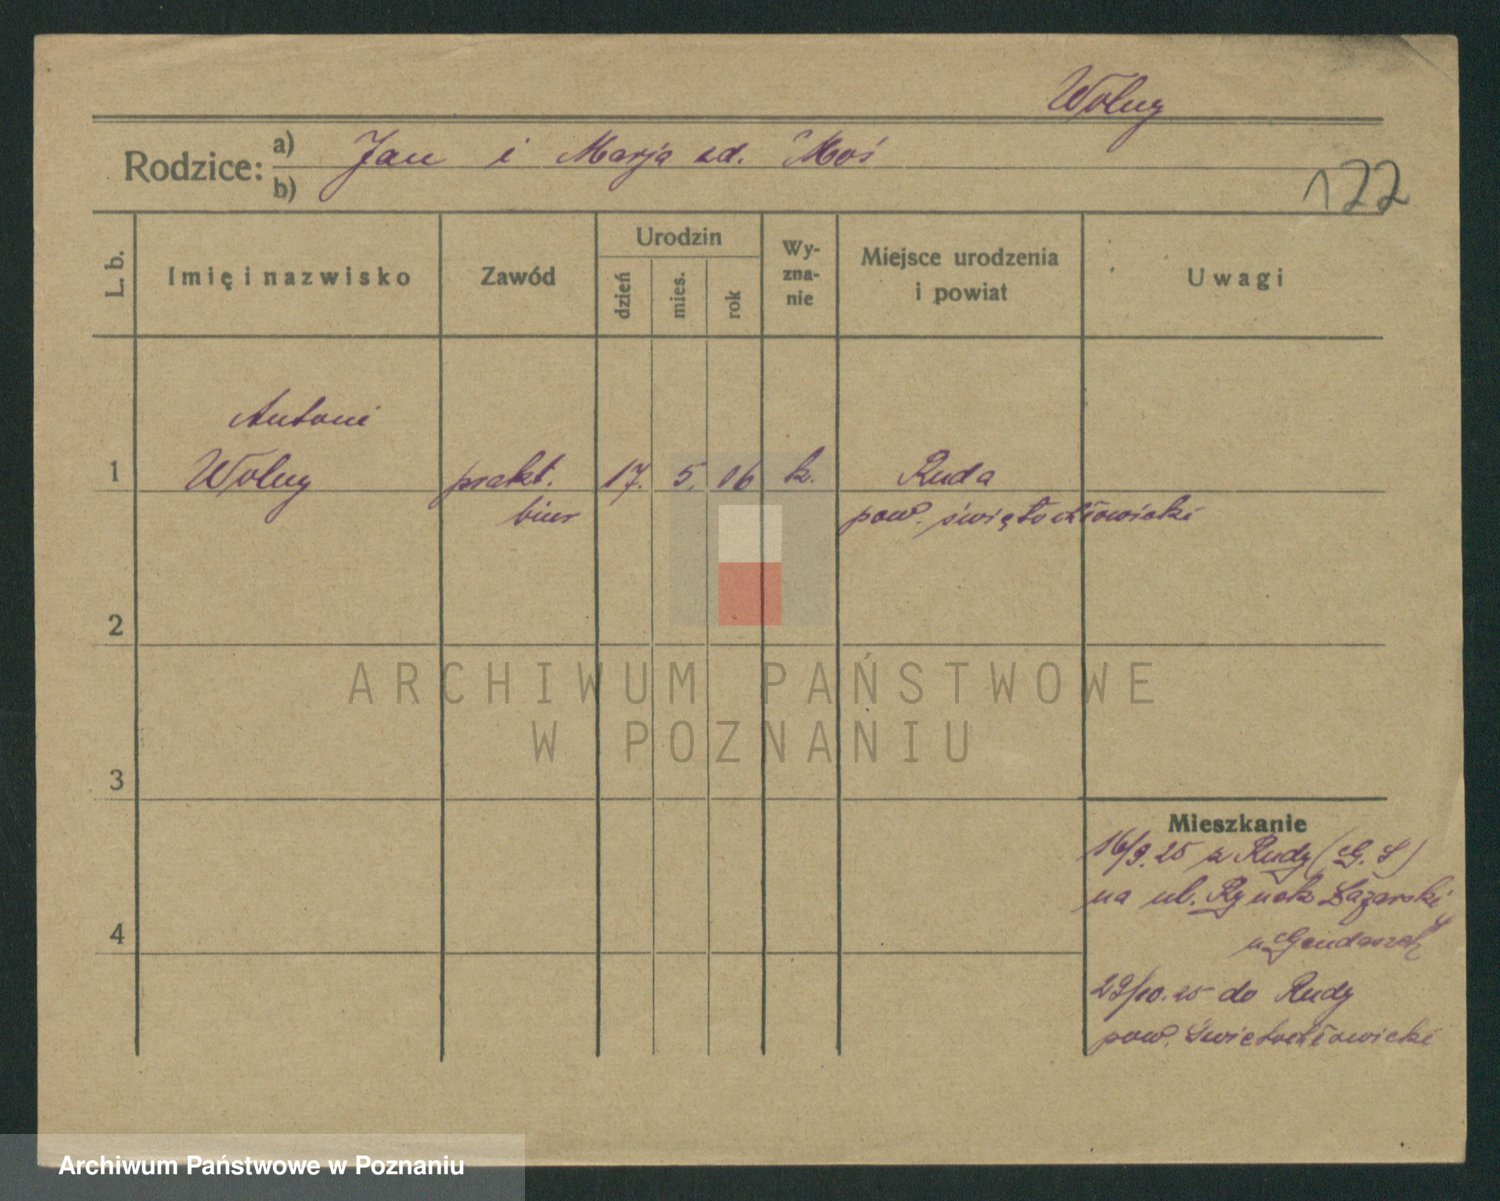 Wolny
Rodzice: a) Jan i Marja zd. Moś
b)
122
L. b.
Imię i nazwisko
Zawód
Urodzin
dzień
mies.
rok
Wy-
zna-
nie
Miejsce urodzenia
i powiat
Uwagi
Antoni
1 Wolny prakt. 17. 5. 06 k. Ruda
biur pow. świętochłowicki
2
3
4
Mieszkanie
16/9.25 z Rudy (G. S)
na ul. Rynek Łazarski
u
29/10.25 do Rudy
pow. Świętochłowicki
ARCHIWUM PAŃSTWOWE
W POZNANIU
Archiwum Państwowe w Poznaniu